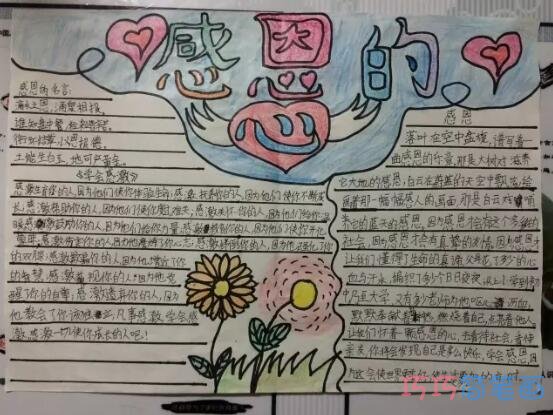 感恩的心
感恩的名言:
滴水之恩,涌泉相报。
谁知盘中餐,粒粒皆辛苦。
衔环结草,以恩报德。
土能生白玉,地可产黄金。
《学会感激》
感激生育你的人,因为他们使你体验生命;感激抚养你的人,因为他们使你不断成
长;感激帮助你的人,因为他们使你度过难关;感激关怀你的人,因为他们给你温
暖;感激鼓励你的人,因为他们给你力量;感激教育你的人,因为他们使你开化
蒙昧;感激伤害你的人,因为他磨练了你的心志;感激绊倒你的人,因为他强化了你
的双腿;感激欺骗你的人,因为他增进了你
的智慧;感激藐视你的人,因为他
醒了你的自尊;感激遗弃你的人,因为
他教会了你该独立,凡事感激,学会感
激,感激一切使你成长的人吧!
感恩
落叶在空中盘旋,谱写着一
曲感恩的乐章,那是大树对滋养
它大地的感恩;白云在蔚蓝的天空中飘荡,绘
画着那一幅幅感人的画面,那是白云对哺
养它的蓝天的感恩。因为感恩才会有这个多彩的
社会,因为感恩才会有真挚的友情,因为感恩才
让我们懂得了生命的真谛。
从
默默奉献
燃烧着自己,点亮着他人。
让我们怀着一颗感恩的心,去看待社会,看待
亲友,你将会发现自己是多么快乐,学会感恩,因
为这会使世界
巧巧简笔画